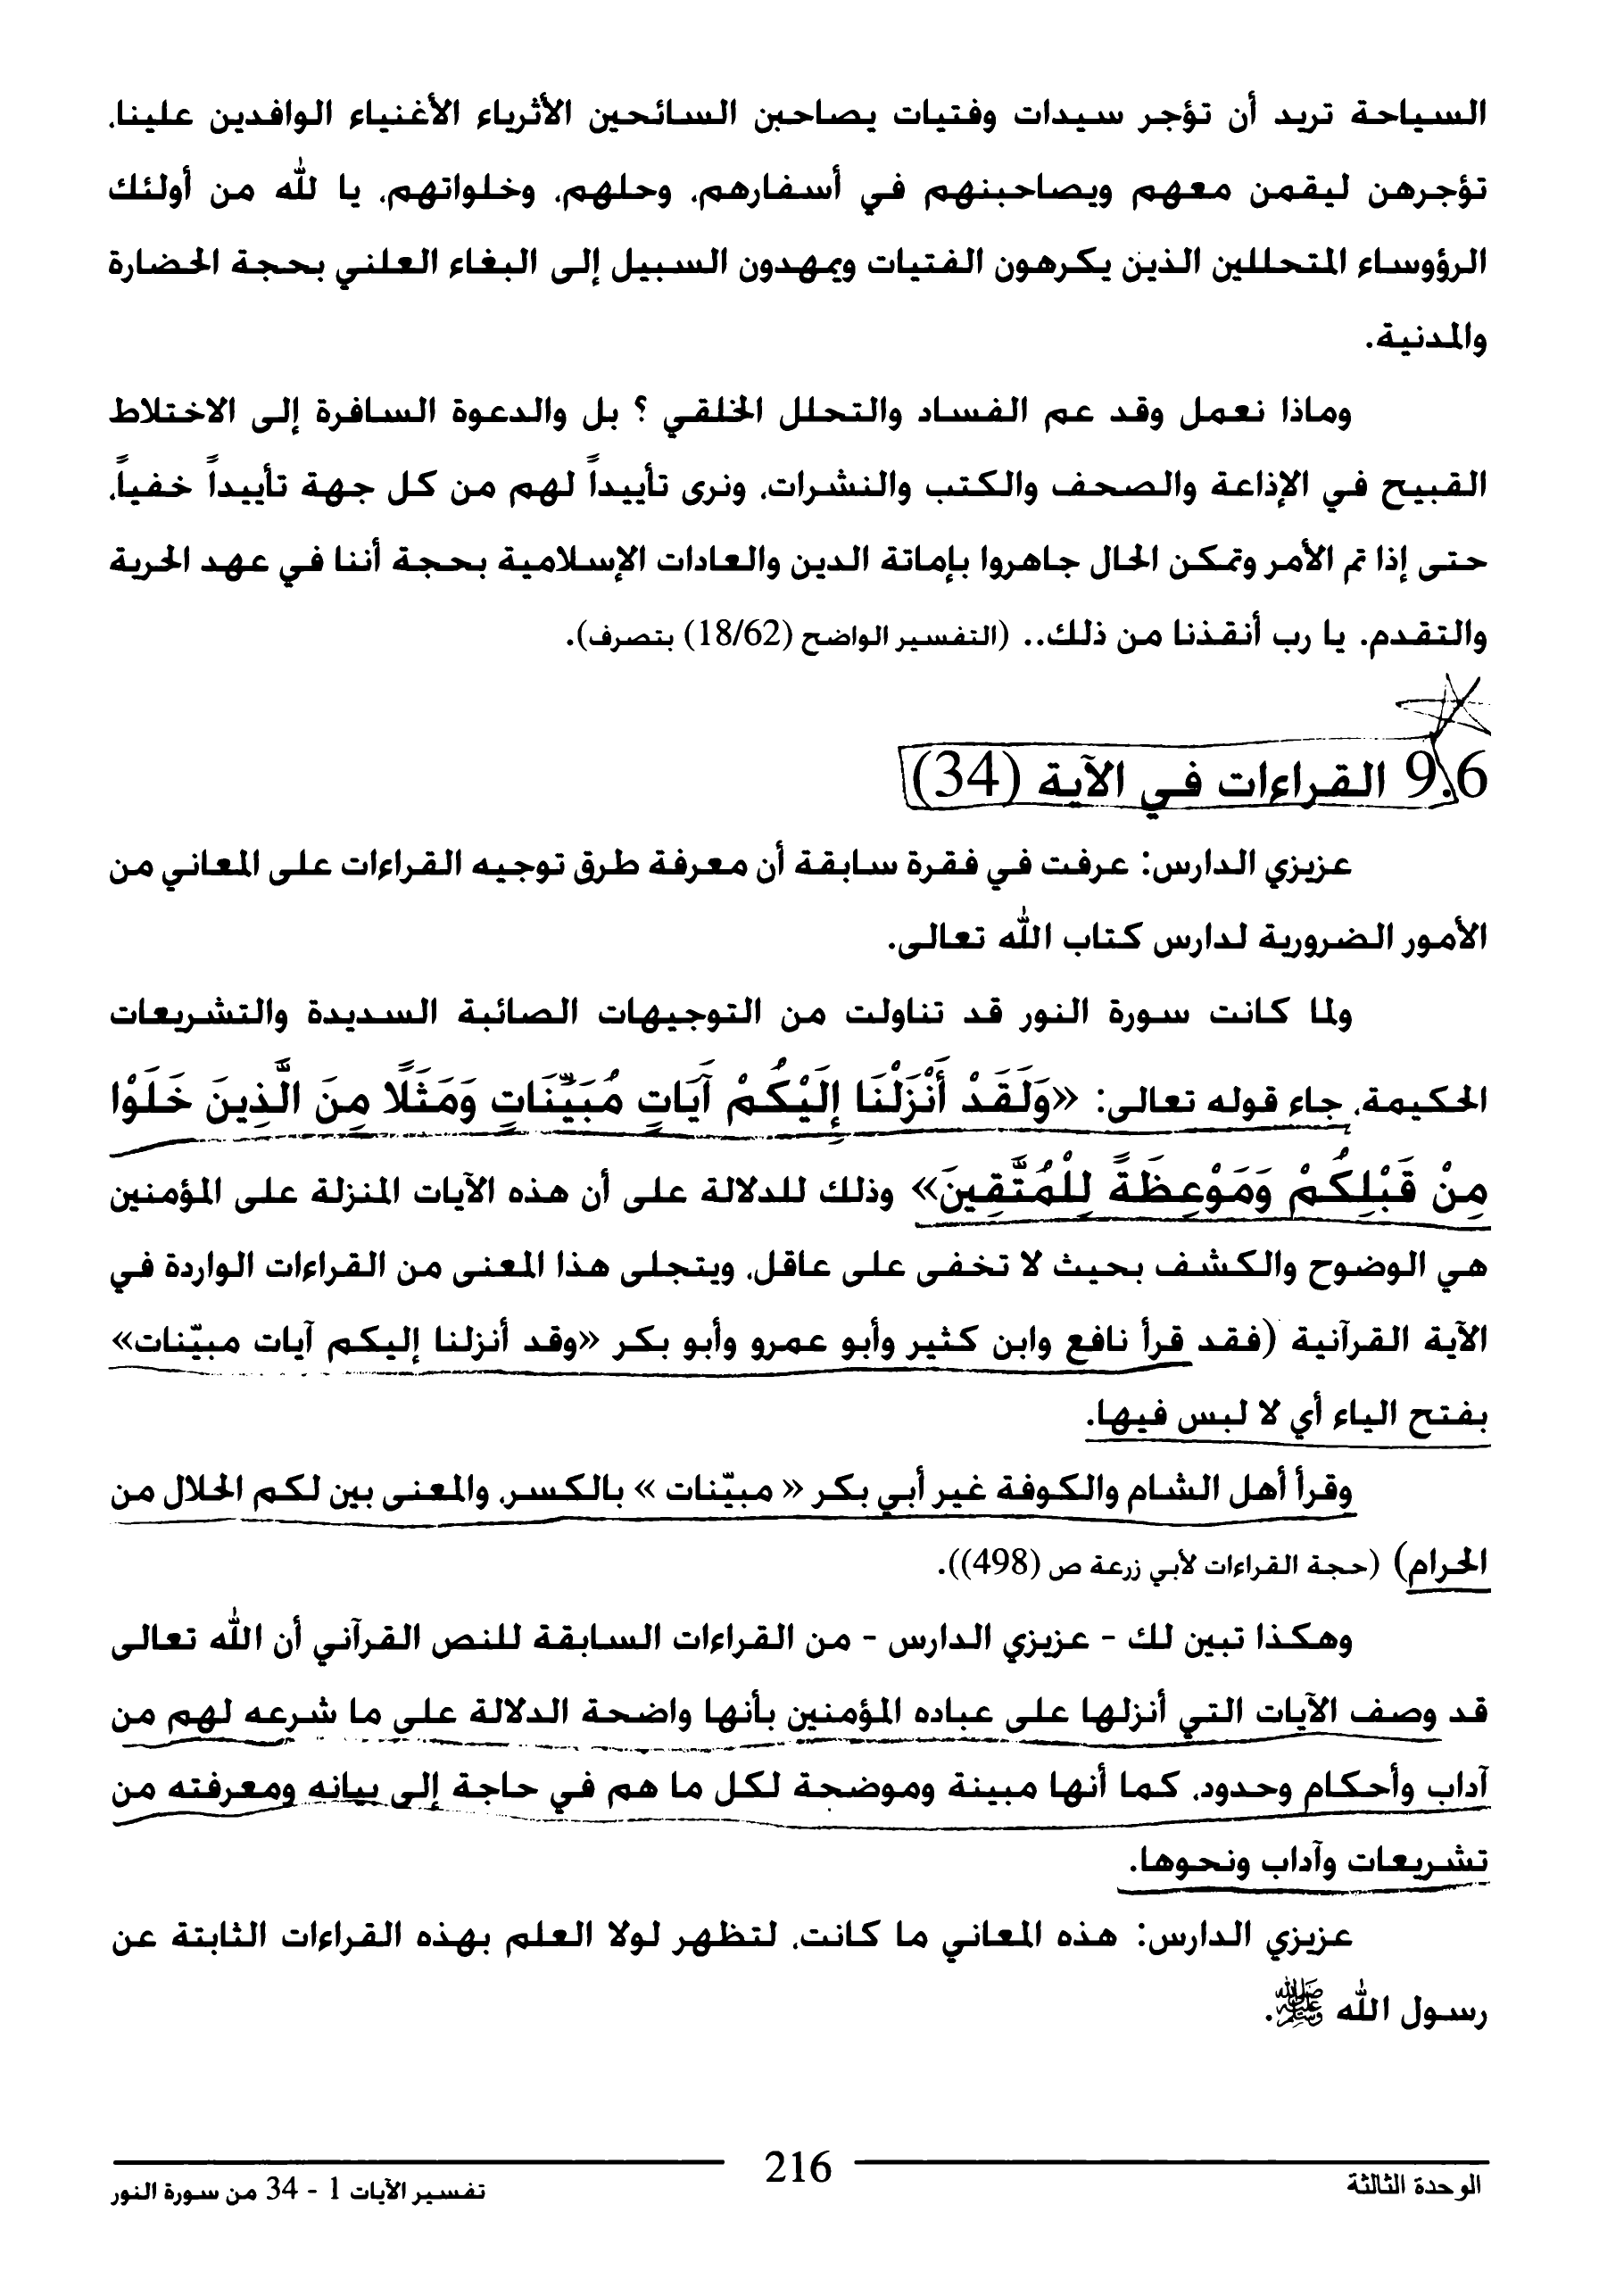 السياحة تريد أن تؤجر سيدات وفتيات يصاحبن السائحين الأثرياء الأغنياء الوافدين علينا،
تؤجرهن ليقمن معهم ويصاحبنهم في أسفارهم، وحلهم، وخلواتهم، يا لله من أولئك
الرؤوساء المتحللين الذين يكرهون الفتيات ويمهدون السبيل إلى البغاء العلني بحجة الحضارة
والمدنية.
وماذا نعمل وقد عم الفساد والتحلل الخلقي ؟ بل والدعوة السافرة إلى الاختلاط
القبيح في الإذاعة والصحف والكتب والنشرات، ونرى تأييداً لهم من كل جهة تأييداً خفياً،
حتى إذا تم الأمر وتمكن الحال جاهروا بإماتة الدين والعادات الإسلامية بحجة أننا في عهد الحرية
والتقدم. يا رب أنقذنا من ذلك.. (التفسير الواضح (18/62) بتصرف).
9.6 القراءات في الآية (34)
عزيزي الدارس: عرفت في فقرة سابقة أن معرفة طرق توجيه القراءات على المعاني من
الأمور الضرورية لدارس كتاب الله تعالى.
ولما كانت سورة النور قد تناولت من التوجيهات الصائبة السديدة والتشريعات
الحكيمة، جاء قوله تعالى: «وَلَقَدْ أَنْزَلْنَا إِلَيْكُمْ آيَاتٍ مُبَيِّنَاتٍ وَمَثَلًا مِنَ الَّذِينَ خَلَوْا
مِنْ قَبْلِكُمْ وَمَوْعِظَةً لِلْمُتَّقِينَ» وذلك للدلالة على أن هذه الآيات المنزلة على المؤمنين
هي الوضوح والكشف بحيث لا تخفى على عاقل، ويتجلى هذا المعنى من القراءات الواردة في
الآية القرآنية (فقد قرأ نافع وابن كثير وأبو عمرو وأبو بكر «وقد أنزلنا إليكم آيات مبيّنات»
بفتح الياء أي لا لبس فيها.
وقرأ أهل الشام والكوفة غير أبي بكر « مبيّنات » بالكسر، والمعنى بين لكم الحلال من
الحرام) (حجة القراءات لأبي زرعة ص (498)).
وهكذا تبين لك - عزيزي الدارس - من القراءات السابقة للنص القرآني أن الله تعالى
قد وصف الآيات التي أنزلها على عباده المؤمنين بأنها واضحة الدلالة على ما شرعه لهم من
آداب وأحكام وحدود، كما أنها مبينة وموضحة لكل ما هم في حاجة إلى بيانه ومعرفته من
تشريعات وآداب ونحوها.
عزيزي الدارس: هذه المعاني ما كانت، لتظهر لولا العلم بهذه القراءات الثابتة عن
رسول الله ﷺ.
الوحدة الثالثة
216
تفسير الآيات 1 - 34 من سورة النور